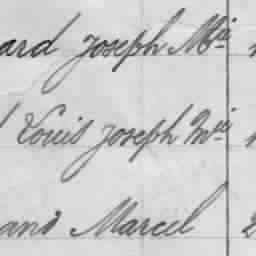 ard Joseph Mie
Louis Joseph Mie
and Marcel